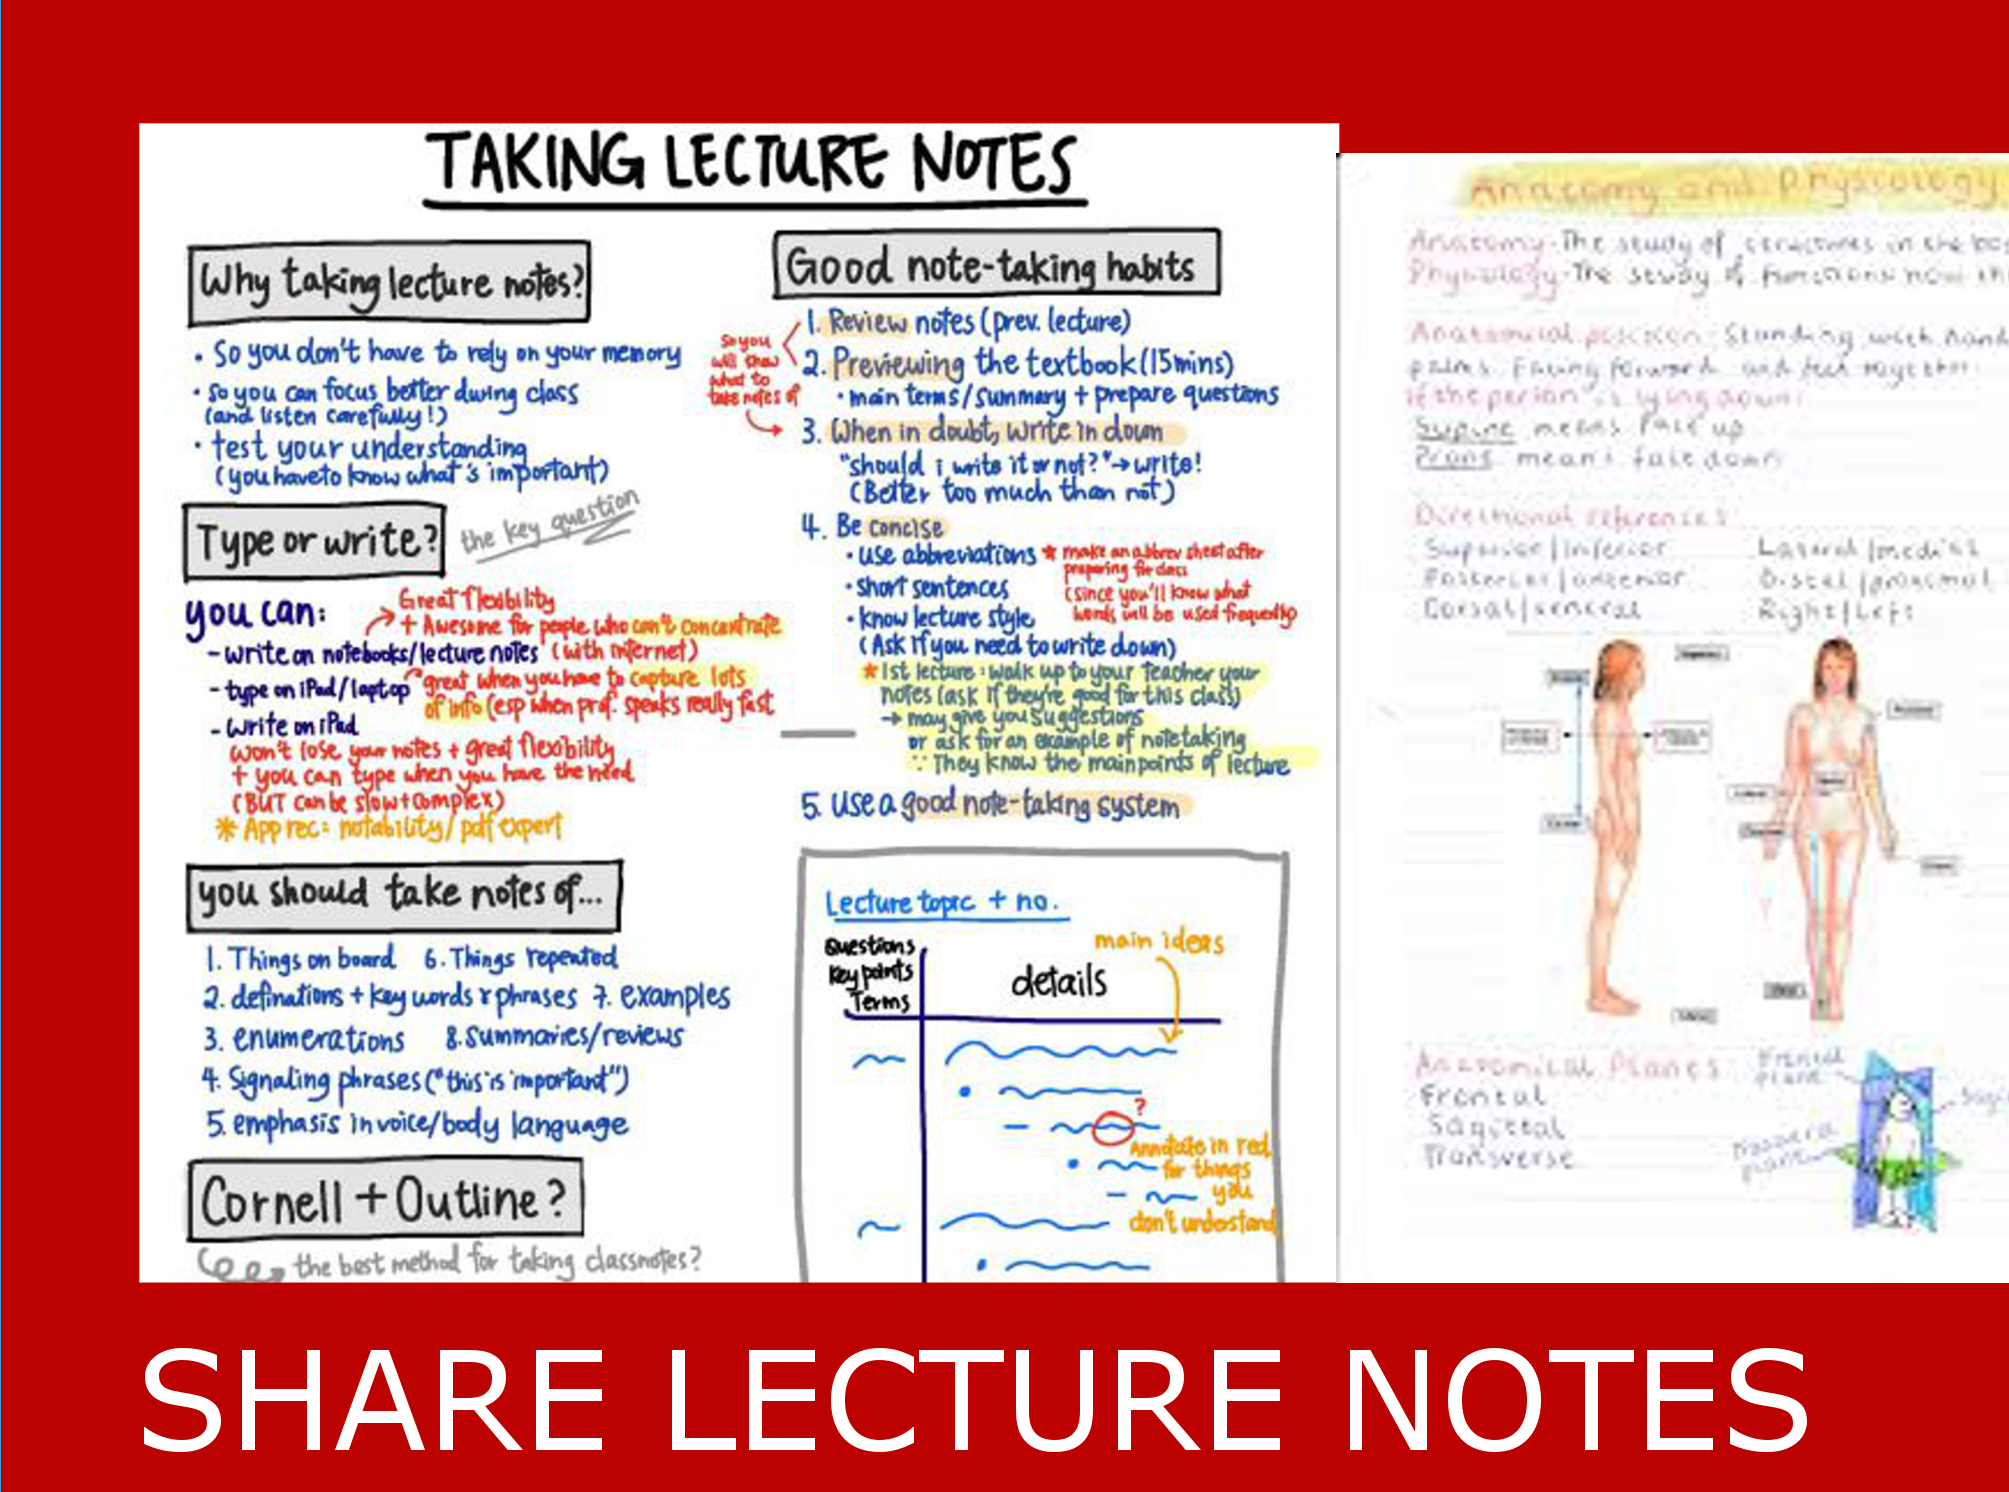 TAKING LECTURE NOTES
Why taking lecture notes?
• So you don't have to rely on your memory
• so you can focus better during class
(and listen carefully!)
• test your understanding
(you have to know what's important)
Type or write?
the key question
you can:
Great flexibility
+ Awesome for people who can't concentrate
- write on notebooks/lecture notes (with internet)
- type on iPad/laptop great when you have to capture lots
of info (esp when prof. speaks really fast
- write on iPad
won't lose your notes + great flexibility
+ you can type when you have the need
(BUT can be slow + complex)
* App rec: notability/ pdf expert
you should take notes of...
1. Things on board 6. Things repeated
2. definations + key words & phrases 7. examples
3. enumerations 8. Summaries/reviews
4. Signaling phrases ("this is important")
5. emphasis in voice/body language
Cornell + Outline?
the best method for taking classnotes?
Good note-taking habits
1. Review notes (prev. lecture)
2. Previewing the textbook (15mins)
• main terms/summary + prepare questions
so you
will know
what to
take notes of
3. When in doubt, write in down
"should i write it or not?" → write!
(Better too much than not)
4. Be concise
• use abbreviations * make an abbrev sheet after
preparing for class
• short sentences (since you'll know what
words will be used frequently)
• know lecture style
(Ask if you need to write down)
* 1st lecture: walk up to your teacher your
notes (ask if they're good for this class)
→ may give you suggestions
or ask for an example of notetaking
∵ They know the main points of lecture
5. use a good note-taking system
Lecture topic + no.
Questions
Key points
Terms
details
main ideas
?
Annotate in red
for things
you
don't understand
Anatomy and Physiology
Anatomy - The study of structures in the
Physiology - The study of functions how
Anatomical position - Standing with hand
palms facing forward and feet together
if the person is lying down:
Supine means face up
Prone means face down
Directional references:
Superior/inferior Lateral/medial
Posterior/anterior Distal/proximal
Dorsal/ventral Right/Left
Anatomical Planes
Frontal
Sagittal
Transverse
Frontal
plane
plane
SHARE LECTURE NOTES